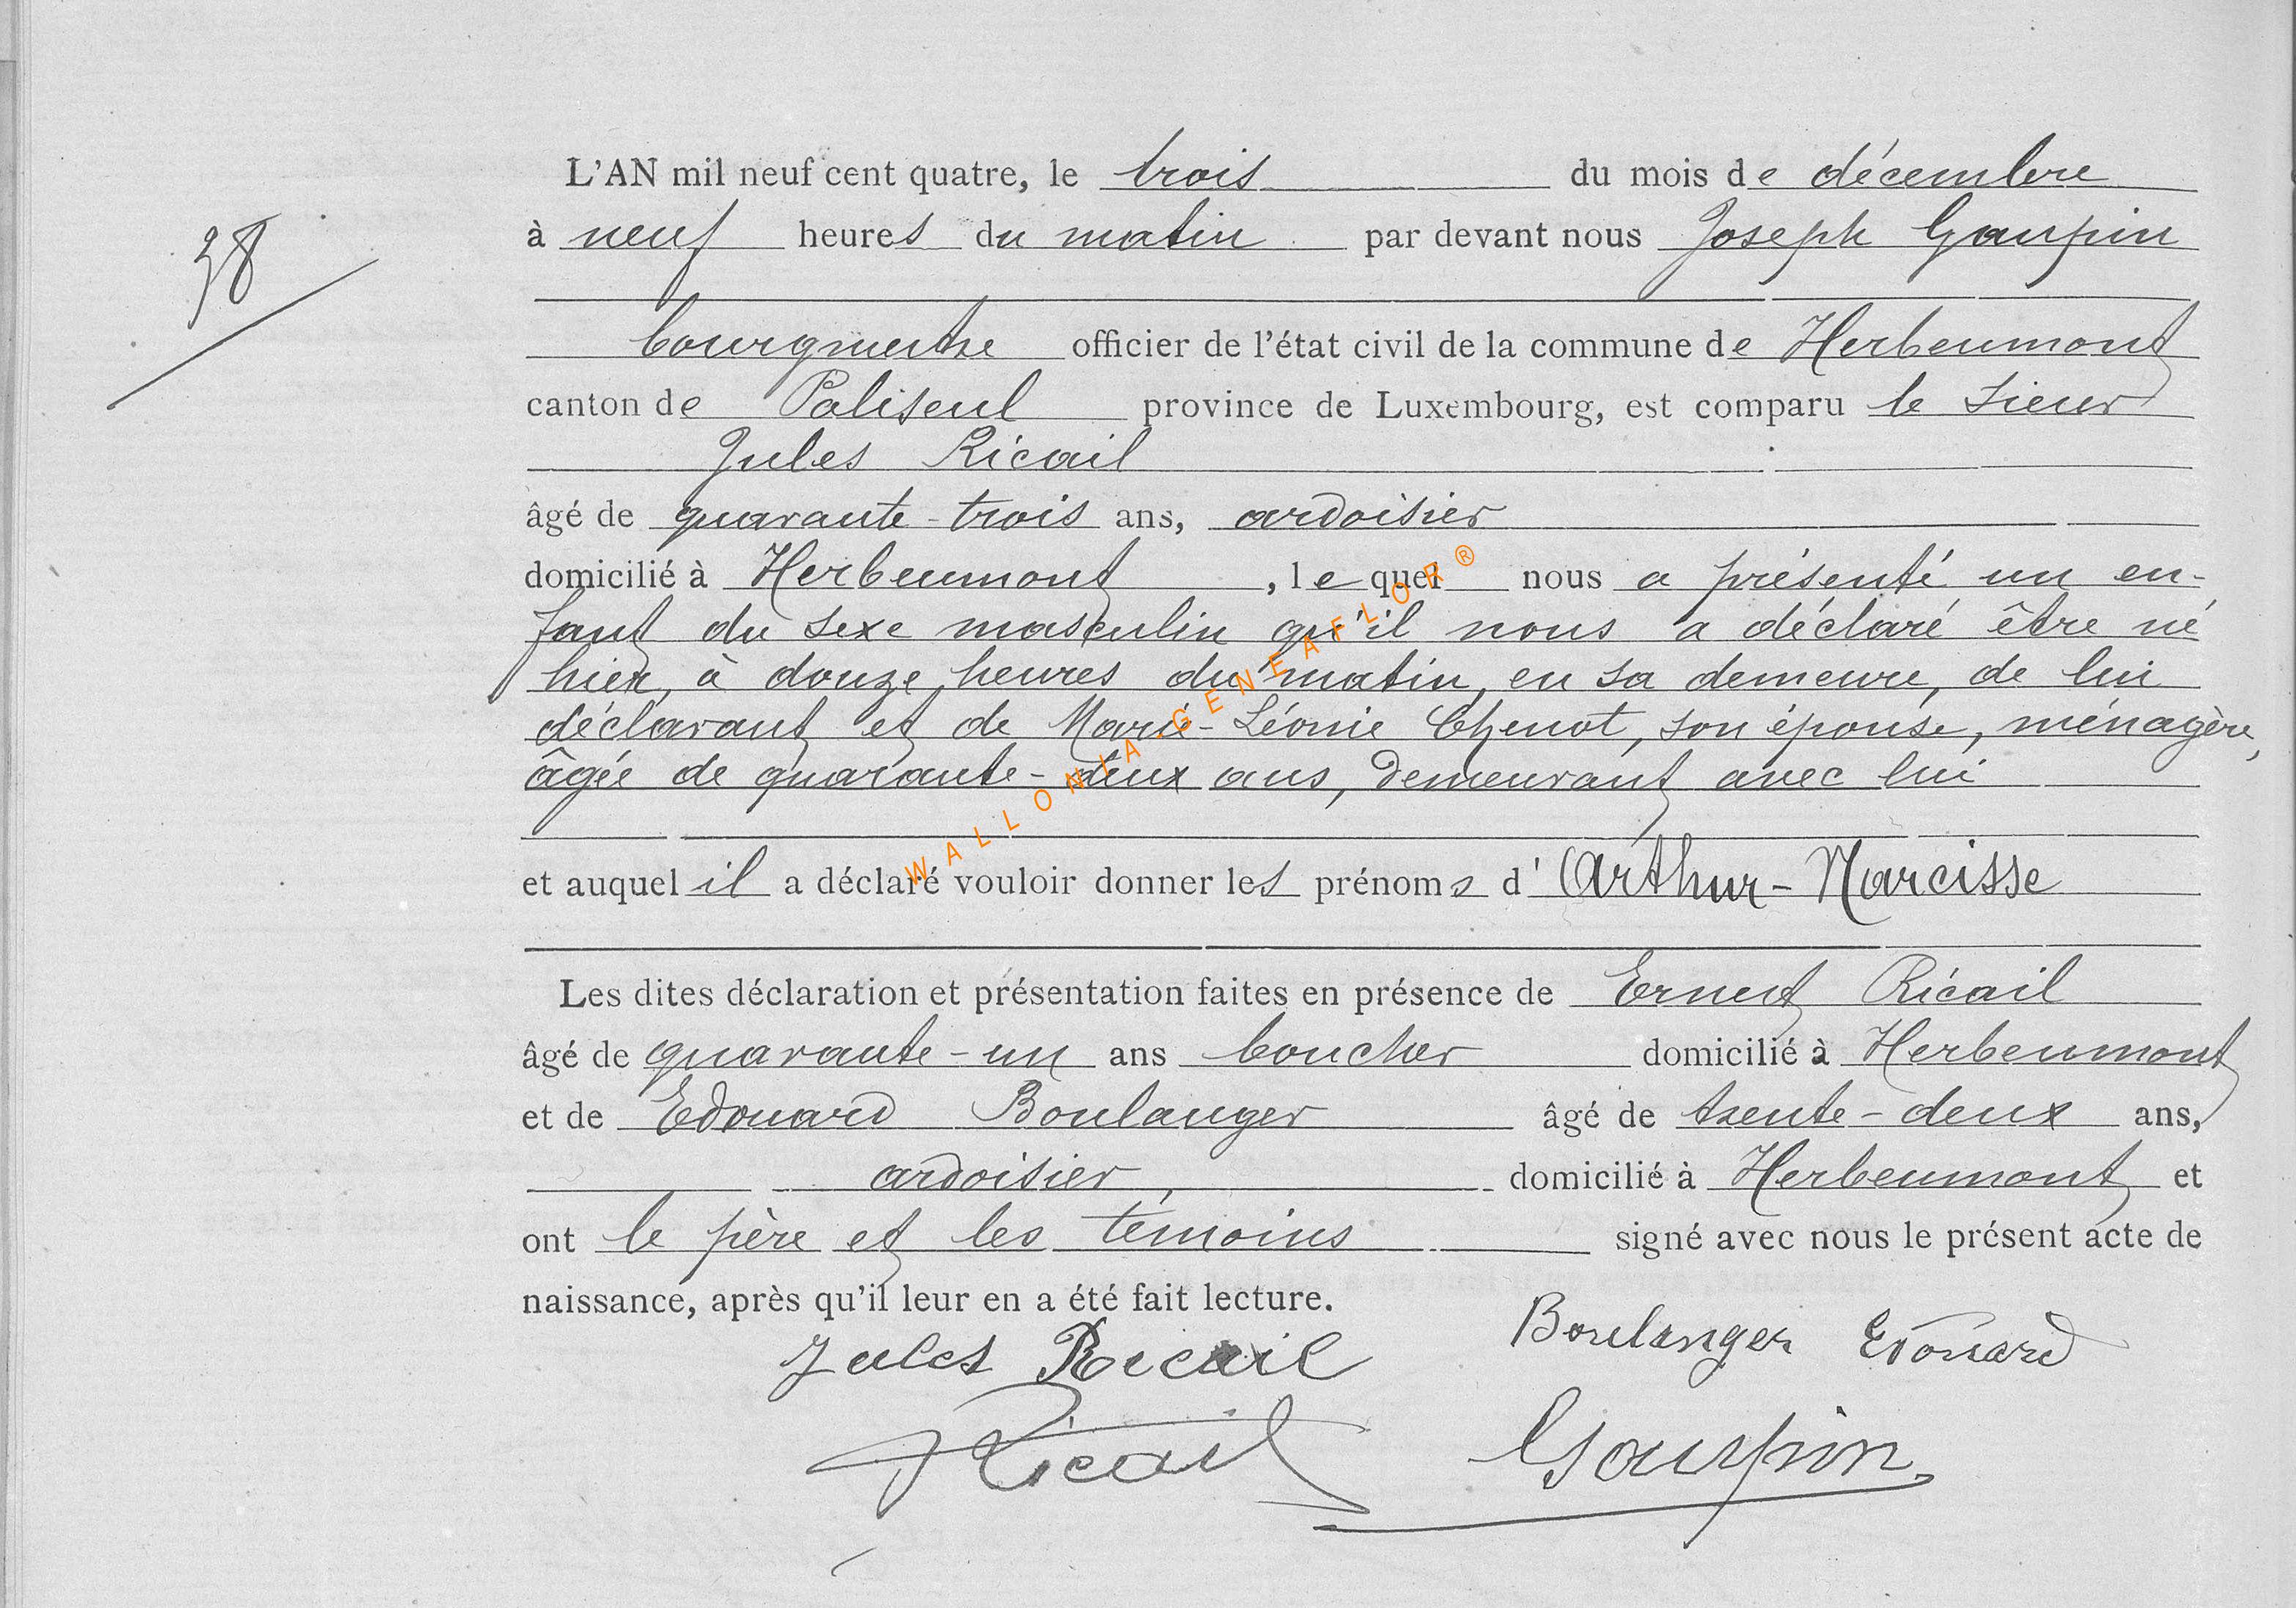 38
L'AN mil neuf cent quatre, le trois du mois de décembre
à neuf heures du matin par devant nous Joseph Gaupin
bourgmestre officier de l'état civil de la commune de Herbeumont
canton de Paliseul province de Luxembourg, est comparu le sieur
Jules Ricail
âgé de quarante-trois ans, ardoisier
domicilié à Herbeumont, lequel nous a présenté un en-
fant du sexe masculin qu'il nous a déclaré être né
hier, à douze heures du matin, en sa demeure, de lui
déclarant et de Marie-Léonie Chenot, son épouse, ménagère,
âgée de quarante-deux ans, demeurant avec lui
et auquel il a déclaré vouloir donner les prénoms d'Arthur-Narcisse
Les dites déclaration et présentation faites en présence de Ernest Ricail
âgé de quarante-un ans boucher domicilié à Herbeumont
et de Edouard Boulanger âgé de trente-deux ans,
ardoisier, domicilié à Herbeumont et
ont le père et les témoins signé avec nous le présent acte de
naissance, après qu'il leur en a été fait lecture.
Jules Ricail Boulanger Edouard
Ricail Gaupin
WALLONIA-GENEAFLOR®